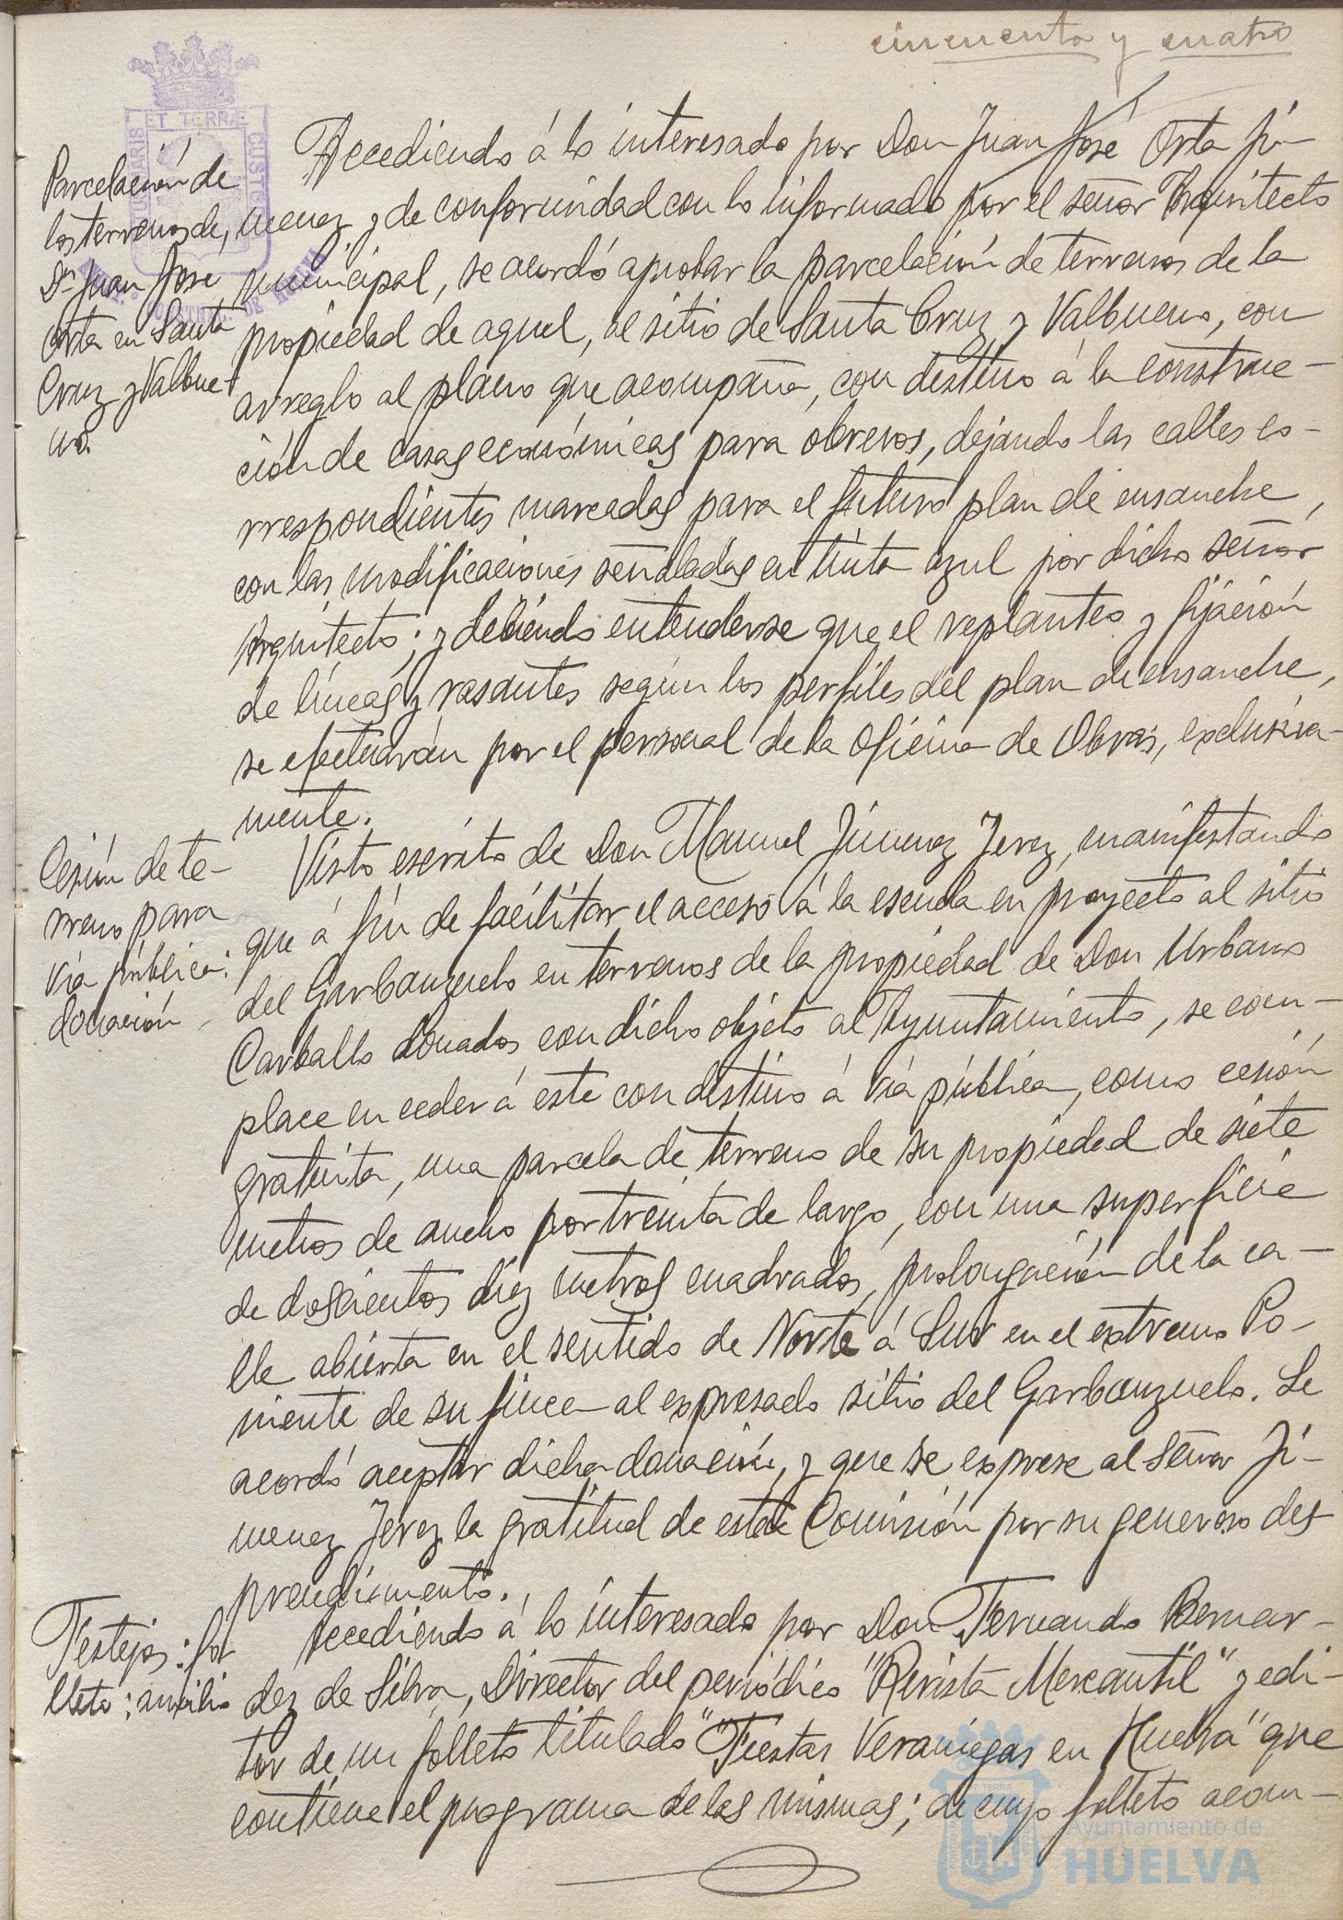 cincuenta y cuatro
ET TERRÆ
CUSTOS
Parcelación de
los terrenos de
Dn Juan José
Orta en Santa
Cruz y Valbue-
no.
Accediendo á lo interesado por Don Juan José Orta Ji-
menez y de conformidad con lo informado por el señor Arquitecto
municipal, se acordó aprobar la parcelación de terrenos de la
propiedad de aquel, al sitio de Santa Cruz y Valbueno, con
arreglo al plano que acompaña, con destino á la construc-
ción de casas económicas para obreros, dejando las calles co-
rrespondientes marcadas para el futuro plan de ensanche,
con las modificaciones señaladas en tinta azul por dicho señor
Arquitecto; y debiendo entenderse que el replanteo y fijación
de líneas y rasantes según los perfiles del plan de ensanche,
se efectuarán por el personal de la Oficina de Obras, exclusiva-
mente.
Cesión de te-
rreno para
vía pública:
donación
Visto escrito de Don Manuel Jimenez Jerez, manifestando
que á fin de facilitar el acceso á la escuela en proyecto al sitio
del Garbanzuelo en terrenos de la propiedad de Don Urbano
Carballo donados con dicho objeto al Ayuntamiento, se com-
place en ceder á este con destino á vía pública, como cesión
gratuita, una parcela de terreno de su propiedad de siete
metros de ancho por treinta de largo, con una superficie
de doscientos diez metros cuadrados, prolongación de la ca-
lle abierta en el sentido de Norte á Sur en el extremo Po-
niente de su finca al expresado sitio del Garbanzuelo. Se
acordó aceptar dicha donación, y que se exprese al señor Ji-
menez Jerez la gratitud de esta Comisión por su generoso des-
prendimiento.
Festejos: fo-
lleto: auxilio
Accediendo á lo interesado por Don Fernando Bernar-
dez de Silva, Director del periódico "Revista Mercantil" y edi-
tor de un folleto titulado "Fiestas Veraniegas en Huelva" que
contiene el programa de las mismas; de cuyo folleto acom-
Ayuntamiento de
HUELVA